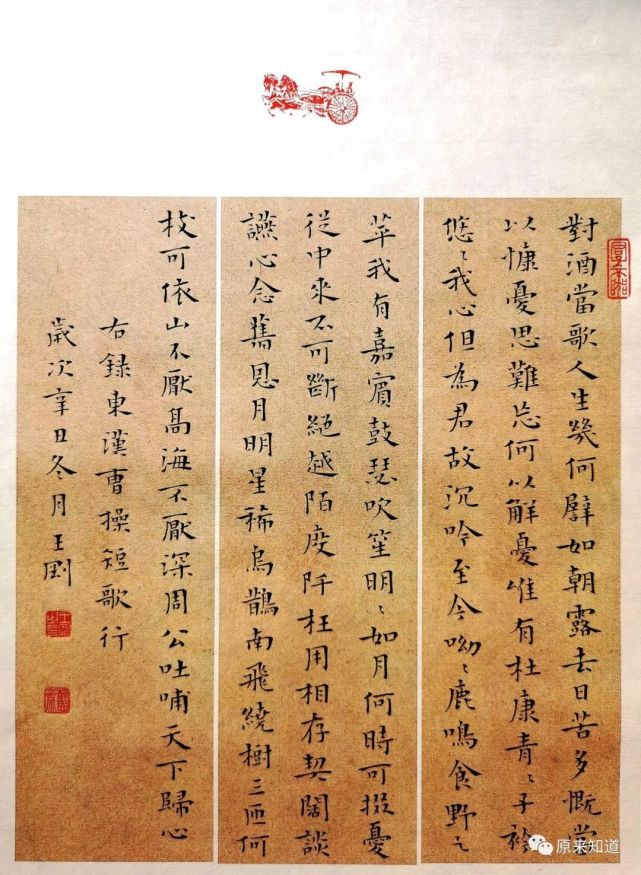 對酒當歌人生幾何譬如朝露去日苦多慨當
以慷憂思難忘何以解憂唯有杜康青〻子衿
悠〻我心但為君故沉吟至今呦〻鹿鳴食野之
苹我有嘉賓鼓瑟吹笙明〻如月何時可掇憂
從中來不可斷絕越陌度阡枉用相存契闊談
讌心念舊恩月明星稀烏鵲南飛繞樹三匝何
枝可依山不厭高海不厭深周公吐哺天下歸心
右錄東漢曹操短歌行
歲次辛丑冬月王剛
原来知道